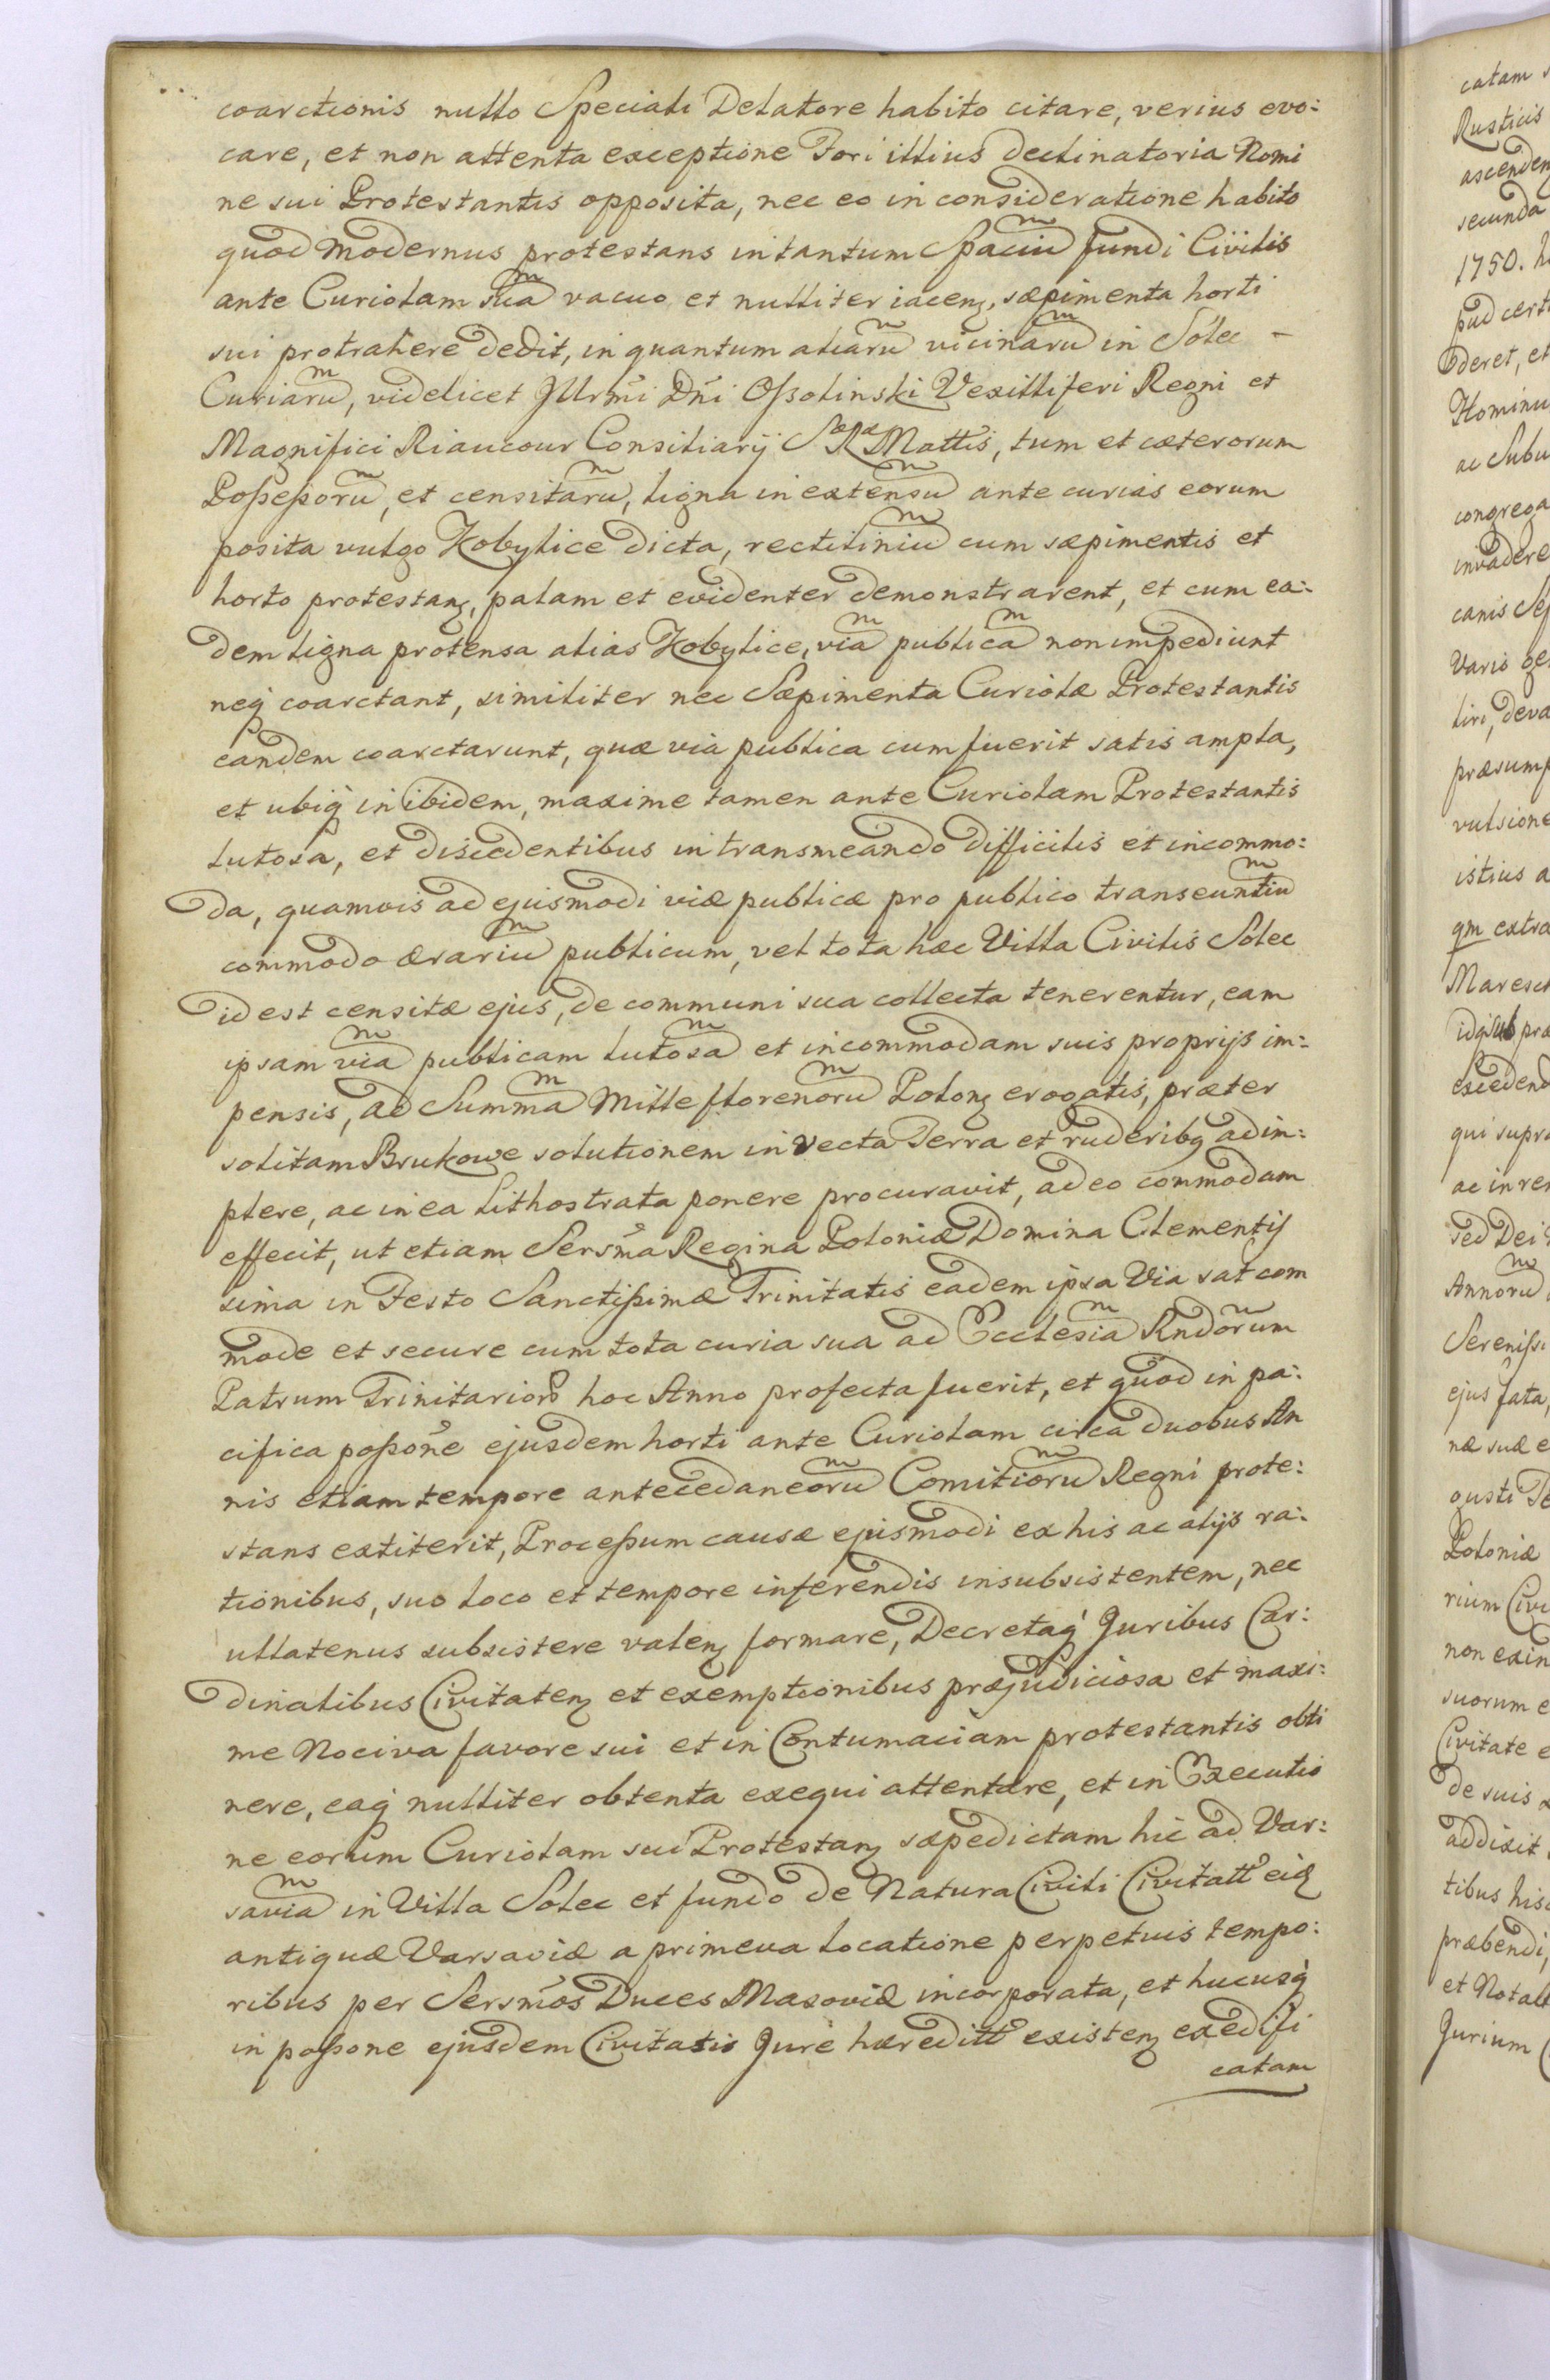 coarctionis nullo Speciali Delatore habito citare, verius evo:
care, et non attenta exceptione Fori illius declinatoria Nomi
ne sui Protestantis opposita, nec eo in consideratione habito
quod Modernus protestans intantum Spaciū fundi Civilis
ante Curiolam suā vacuo et nulliter iacenz, sæpimenta horti
sui protrahere dedit, in quantum aliarū vicinarū in Solec -
Curiarū, videlicet Jllrmi Dni Oßolinski Vexilliferi Regni et
Magnifici Riaucour Consiliarij Sæ Ræ Mattis, tum et cæterorum
Poßeßorū, et censitarū, ligna in extensū ante curias eorum
posita vulgo Kobylice dicta, rectiliniū cum sæpimentis et
horto protestanz, palam et evidenter demonstrarent, et cum ea:
dem ligna protensa alias Kobylice, viā publicā non impediunt
neq coarctant, similiter nec Sæpimenta Curiolæ Protestantis
eandem coarctarunt, quæ via publica cum fuerit satis ampla,
et ubiq in ibidem, maxime tamen ante Curiolam Protestantis
lutosa, et discedentibus in transmeando difficilis et incommo:
da, quamvis ad ejusmodi viæ publicæ pro publico transeuntiū
commodo ærariū publicum, vel tota hæc Villa Civilis Solec
id est censitæ ejus, de communi sua collecta tenerentur, eam
ipsam viā publicam lutosā et incommodam suis proprijs im:
pensis, ad Summā Mille florenorū Polonz erogatis, præter
solitam Brukowe solutionem invecta Terra et ruderibq adim:
plere, ac in ea Lithostrata ponere procuravit, adeo commodam
effecit, ut etiam Sersma Regina Poloniæ Domina Clementiſ
sima in Festo Sanctißimæ Trinitatis eadem ipsa Via sat com
mode et secure cum tota curia sua ad Ecclesiā Rndorum
Patrum Trinitarior hoc Anno profecta fuerit, et quod in pa:
cifica poßone ejusdem horti ante Curiolam circa duobus An
nis etiam tempore antecedaneorū Comitiorū Regni prote:
stans extiterit, Proceßum causæ ejusmodi ex his ac alijs ra:
tionibus, suo loco et tempore inferendis insubsistentem, nec
ullatenus subsistere valenz formare, Decretaq Juribus Car:
dinalibus Civitatenz et exemptionibus præjudiciosa et maxi:
me Nociva favore sui et in Contumaciam protestantis obti
nere, eaq nulliter obtenta exequi attentare, et in Executio
ne eorum Curiolam sui Protestanz sæpedictam hic ad Var:
saviā in Villa Solec et fundo de Natura Civili Civitatt eid
antiquæ Varsaviæ a primeva locatione perpetuis tempo:
ribus per Sersmos Duces Masoviæ incorporata, et hucusq
in poßone ejusdem Civitatis Jure hæreditt existenz exedifi
catam
catam
Rusticis
ascenden
secunda
1750.
pud cert
deret, et
Hominu
ac Subu
congrega
invadere
canis
Vario ge
liri, deva
præsump
vulsione
istius a
qm extra
Maresc
præ
excedend
qui supra
ac in re
sed Dei
Annorū
Sereniſsi
ejus fata,
næ suæ e
gusti
Poloniæ
rium Civi
non exin
suorum e
Civitate e
de suis
addixit
tibus his
præbendi,
et Notab
Jurium